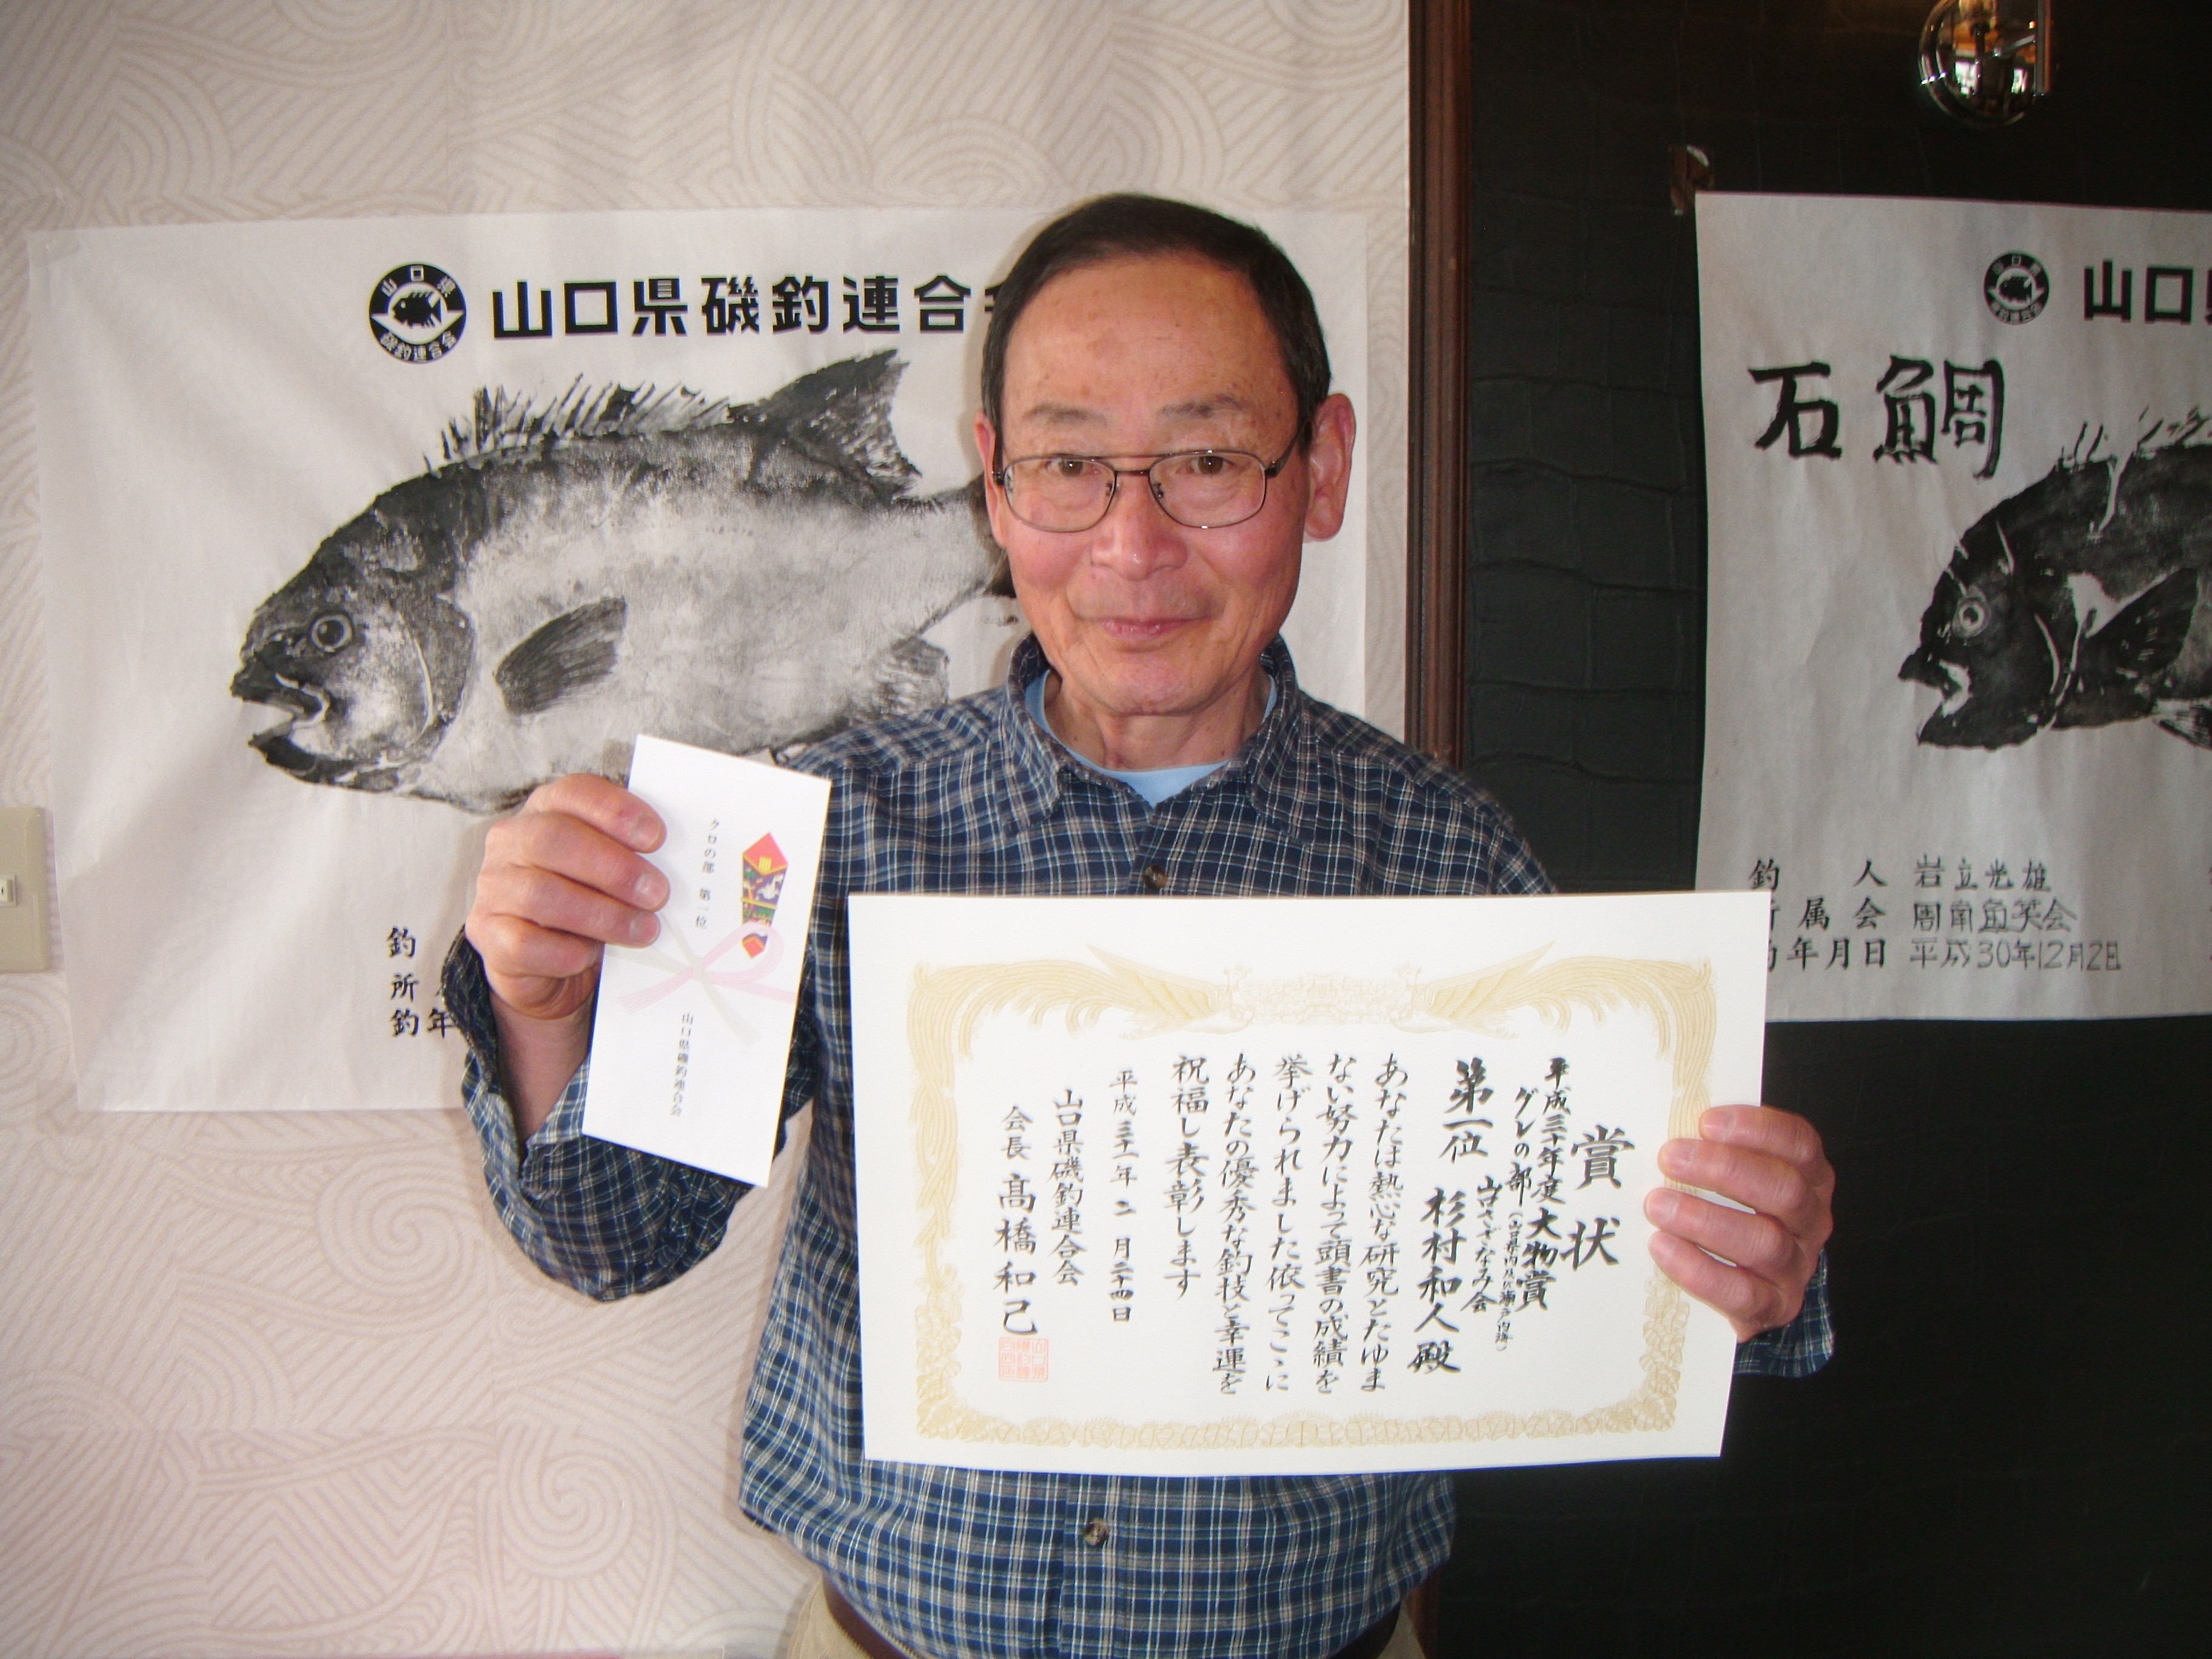 山口県
磯釣連合会
山口県磯釣連合会
釣
所
釣年
山口県
石鯛
釣人 岩立光雄
所属会 周南魚英会
釣年月日 平成30年12月2日
クロの部 第一位
山口県磯釣連合会
賞状
平成三十年度大物賞
グレの部(山口県内及び瀬戸内海)
山口さざなみ会
第一位 杉村和人殿
あなたは熱心な研究とたゆま
ない努力によって頭書の成績を
挙げられました依ってここに
あなたの優秀な釣技と幸運を
祝福し表彰します
平成三十一年二月二十四日
山口県磯釣連合会
会長 髙橋和己